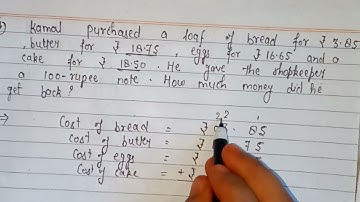 Kamal purchased a loaf of bread for ₹ 3.85
, butter for ₹ 18.75 , eggs for ₹ 16.65 and a
cake for ₹ 18.50 . He gave the shopkeeper
a 100-rupee note . How much money did he
get back ?
2 2 1
→ Cost of bread = ₹ 85
Cost of butter = ₹ 75
Cost of eggs = ₹
Cost of cake = + ₹